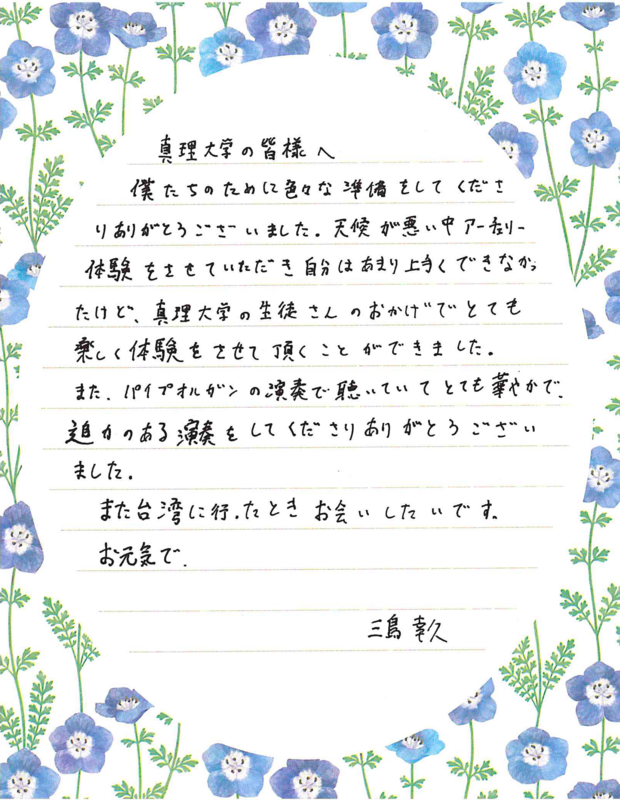 真理大学の皆様へ
僕たちのために色々な準備をしてくださ
りありがとうございました。天候が悪い中アーチェリー
体験をさせていただき自分はあまり上手くできなかっ
たけど、真理大学の生徒さんのおかげでとても
楽しく体験をさせて頂くことができました。
また、パイプオルガンの演奏で聴いていてとても華やかで、
迫力のある演奏をしてくださりありがとうござい
ました。
また台湾に行ったときお会いしたいです。
お元気で。
三島幸久